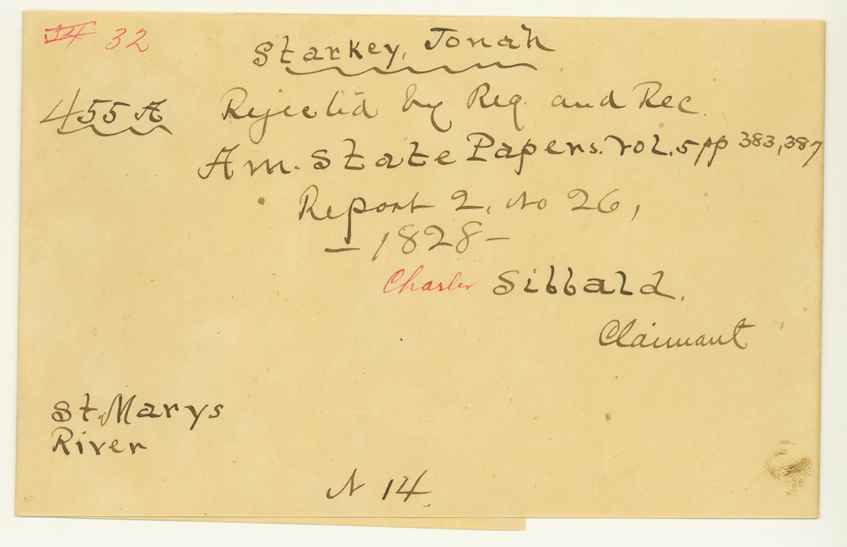 34 32
Starkey, Jonah
455 A Rejected by Reg. and Rec.
Am. State Papers. Vol. 5 pp 383, 387
Report 2, No 26,
— 1828 —
Charles Sibbald.
Claimant
St. Marys
River
N 14.